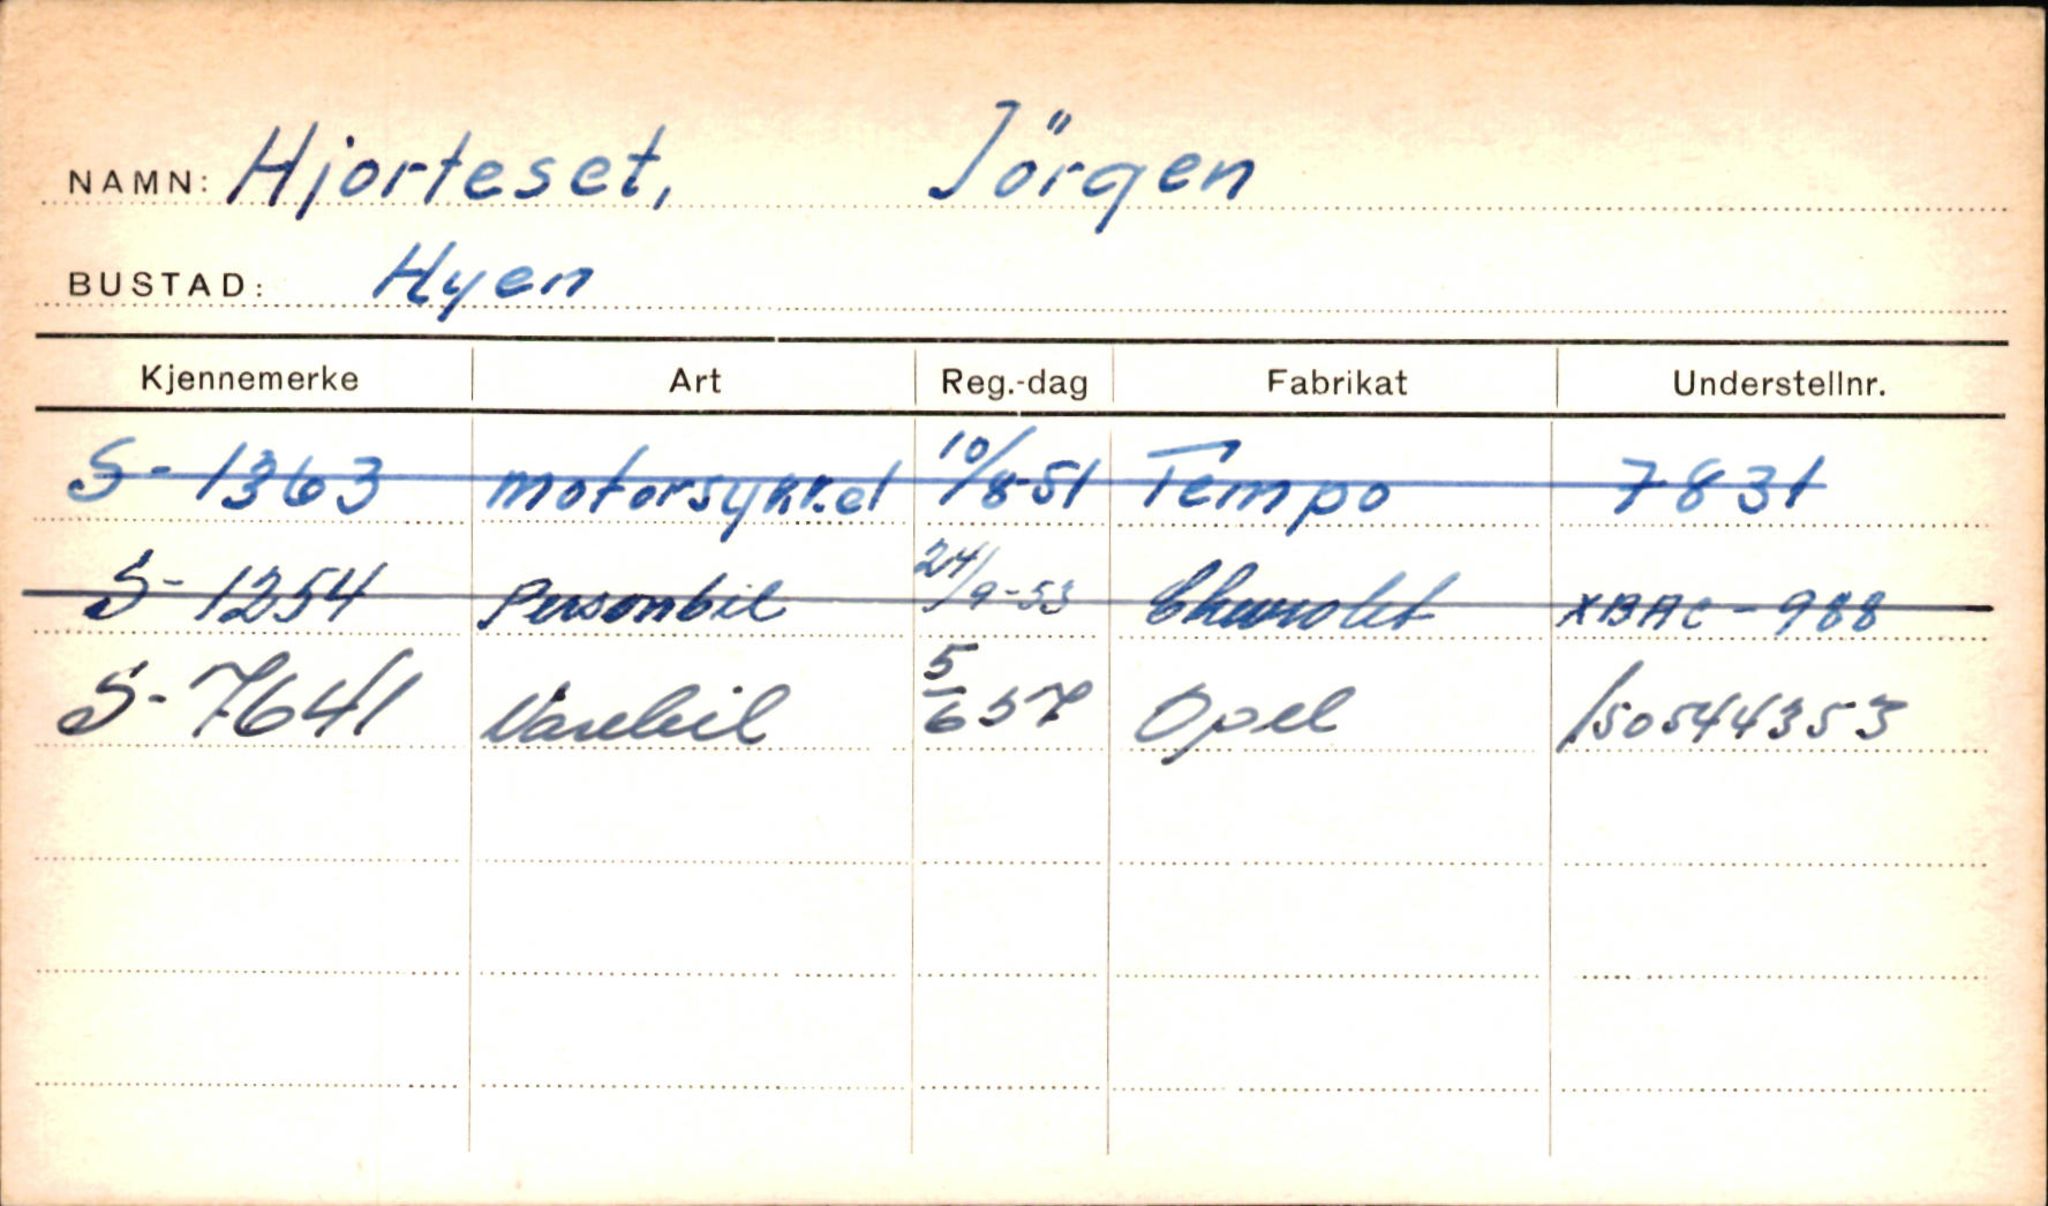 NAMN: Hjorteset, Jörgen
BUSTAD: Hyen
Kjennemerke Art Reg.-dag Fabrikat Understellnr.
S-1363 motorsykkel 10/8-51 Tempo 7831
S-1254 Personbil 24/9-53 Chevrolet XBAC-988
S-7641 Varebil 5/6 57 Opel 150544353